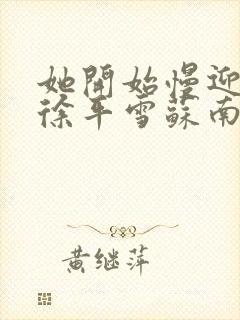 她開始慢迎
徐平雪蘇南
黄继萍